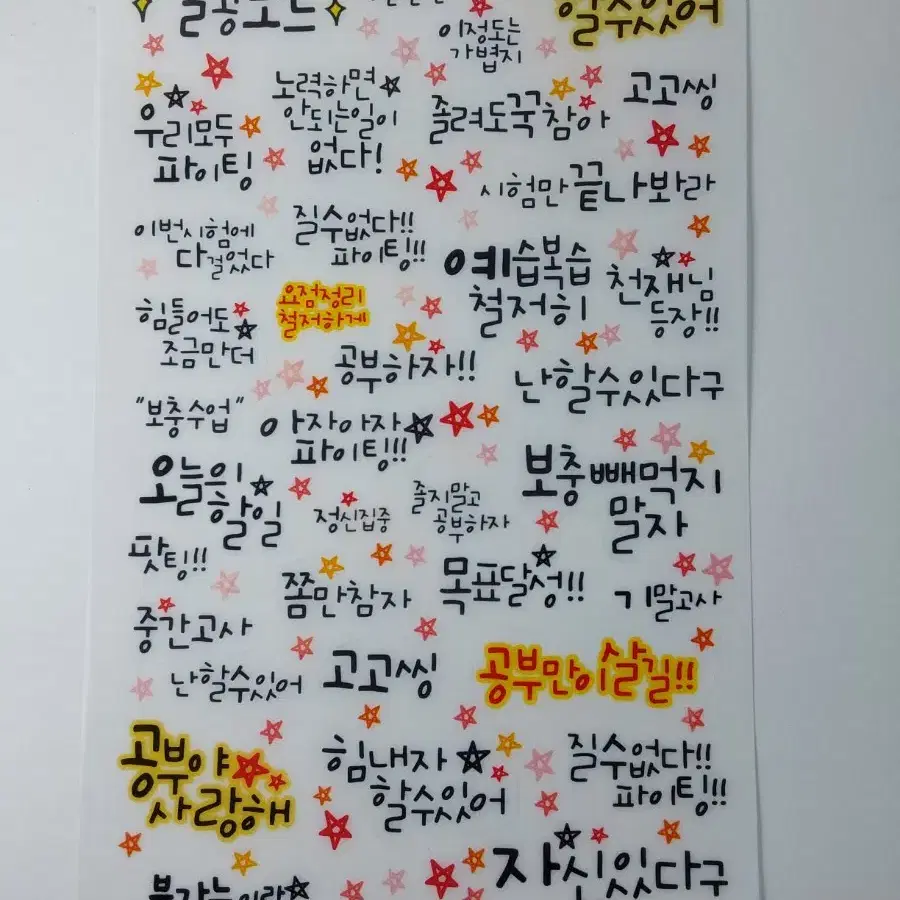 열공모드
할수있어
이정도는
가볍지
우리모두
파이팅
노력하면
안되는일이
없다!
졸려도꾹참아
고고씽
시험만끝나봐라
이번시험에
다걸었다
질수없다!!
파이팅!!
예습복습
철저히
천재님
등장!!
힘들어도
조금만더
요점정리
철저하게
공부하자!!
난할수있다구
"보충수업"
아자아자
파이팅!!!
오늘의
할일
정신집중
졸지말고
공부하자
보충빼먹지
말자
팟팅!!!
쫌만참자
목표달성!!
기말고사
중간고사
난할수있어
고고씽
공부만이살길!!
공부야
사랑해
힘내자
할수있어
질수없다!!
파이팅!!
자신있다구